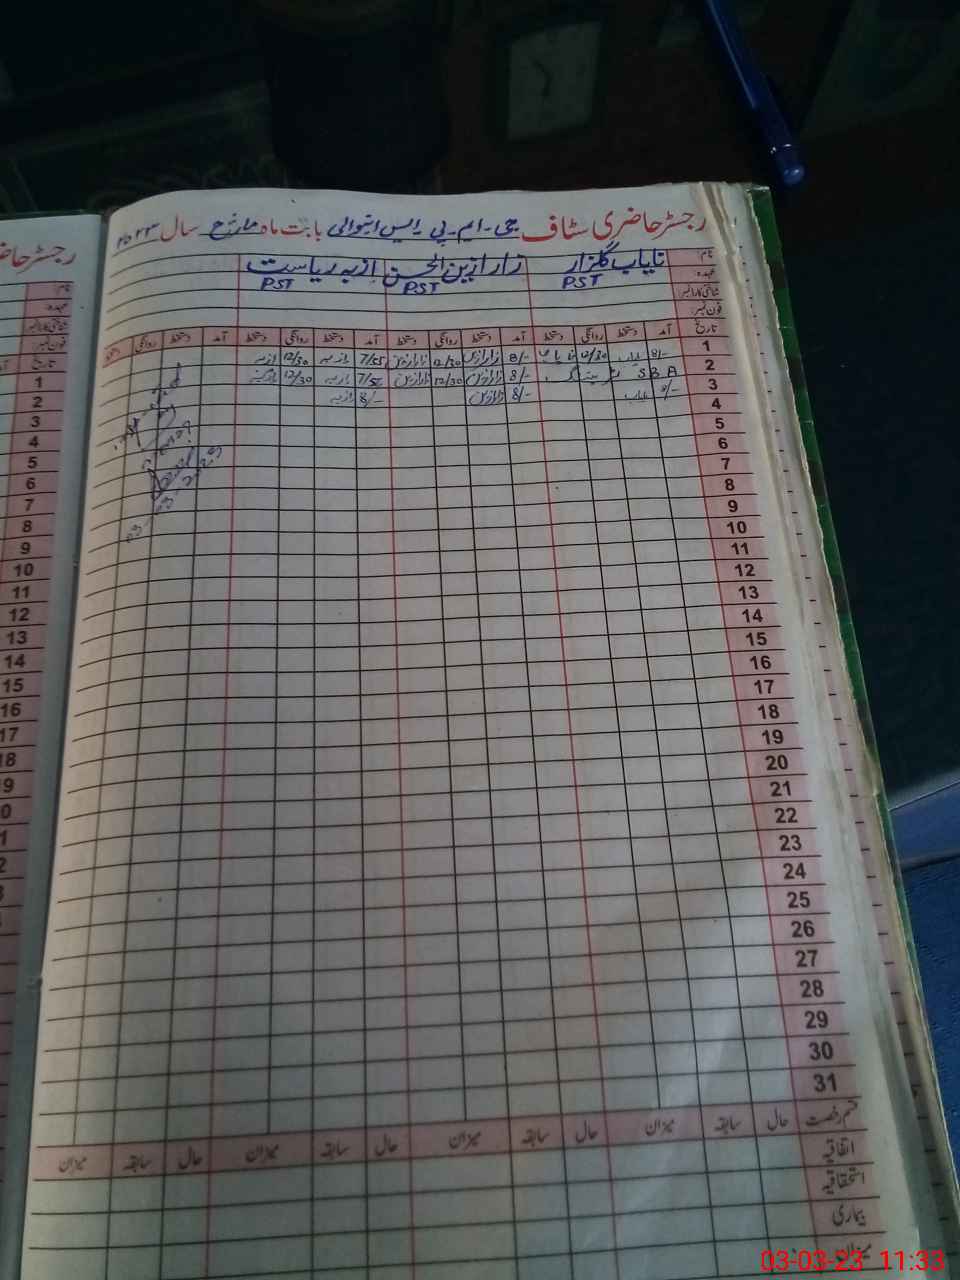 رجسٹر حاضری سٹاف جی۔ایم۔پی ایس انوالی بابت ماہ مارچ سال ۲۰۲۳
نام: نایاب گلزار زارا زین الحسن ازبہ ریاست
عہدہ: PST PST PST
شناختی کارڈ نمبر:
فون نمبر:
تاریخ آمد دستخط روانگی دستخط آمد دستخط روانگی دستخط آمد دستخط روانگی دستخط آمد دستخط روانگی دستخط
1 8/- نایاب 12/30 نایاب 8/- زارازین 12/30 زارازین 7/55 ازبہ 12/30 ازبہ
2 SBA ٹریننگ 8/- زارازین 12/30 زارازین 7/55 ازبہ 12/30 ازبہ
3 8/- نایاب 8/- زارازین 8/- ازبہ
4
5
6
7
8
9
10
11
12
13
14
15
16
17
18
19
20
21
22
23
24
25
26
27
28
29
30
31
قسم رخصت حال سابقہ میزان حال سابقہ میزان حال سابقہ میزان حال سابقہ میزان
اتفاقیہ
استحقاقیہ
بیماری
میزان
03-03-2023
رجسٹر حاضری
نام:
عہدہ:
شناختی کارڈ نمبر:
فون نمبر:
تاریخ
1
2
3
4
5
6
7
8
9
10
11
12
13
14
15
16
17
18
03-03-23 11:33